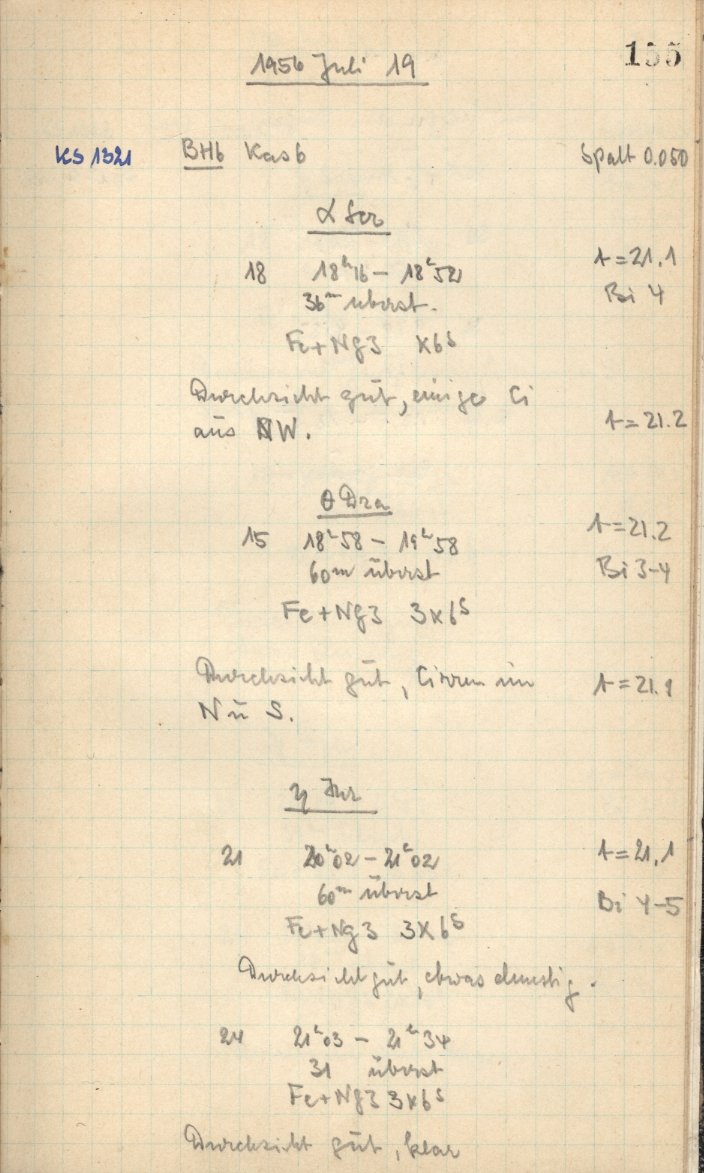 155
1956 Juli 19
KS 1321 BHb Kas b Spalt 0.050
α Ser
18 18ʰ16 – 18ʰ52 t=21.1
36ᵐ überst. Bi 4
Fe+Ng3 x6ˢ
Durchsicht gut, einige Ci
aus NW. t=21.2
θ Dra
15 18ʰ58 – 19ʰ58 t=21.2
60ᵐ überst Bi 3-4
Fe+Ng3 3x6ˢ
Durchsicht gut, Cirren im t=21.1
N u S.
η
21 20ʰ02 – 21ʰ02 t=21.1
60ᵐ überst Bi 4-5
Fe+Ng3 3x6ˢ
Durchsicht gut, etwas dunstig.
24 21ʰ03 – 21ʰ34
31 überst
Fe+Ng3 3x6ˢ
Durchsicht gut, klar